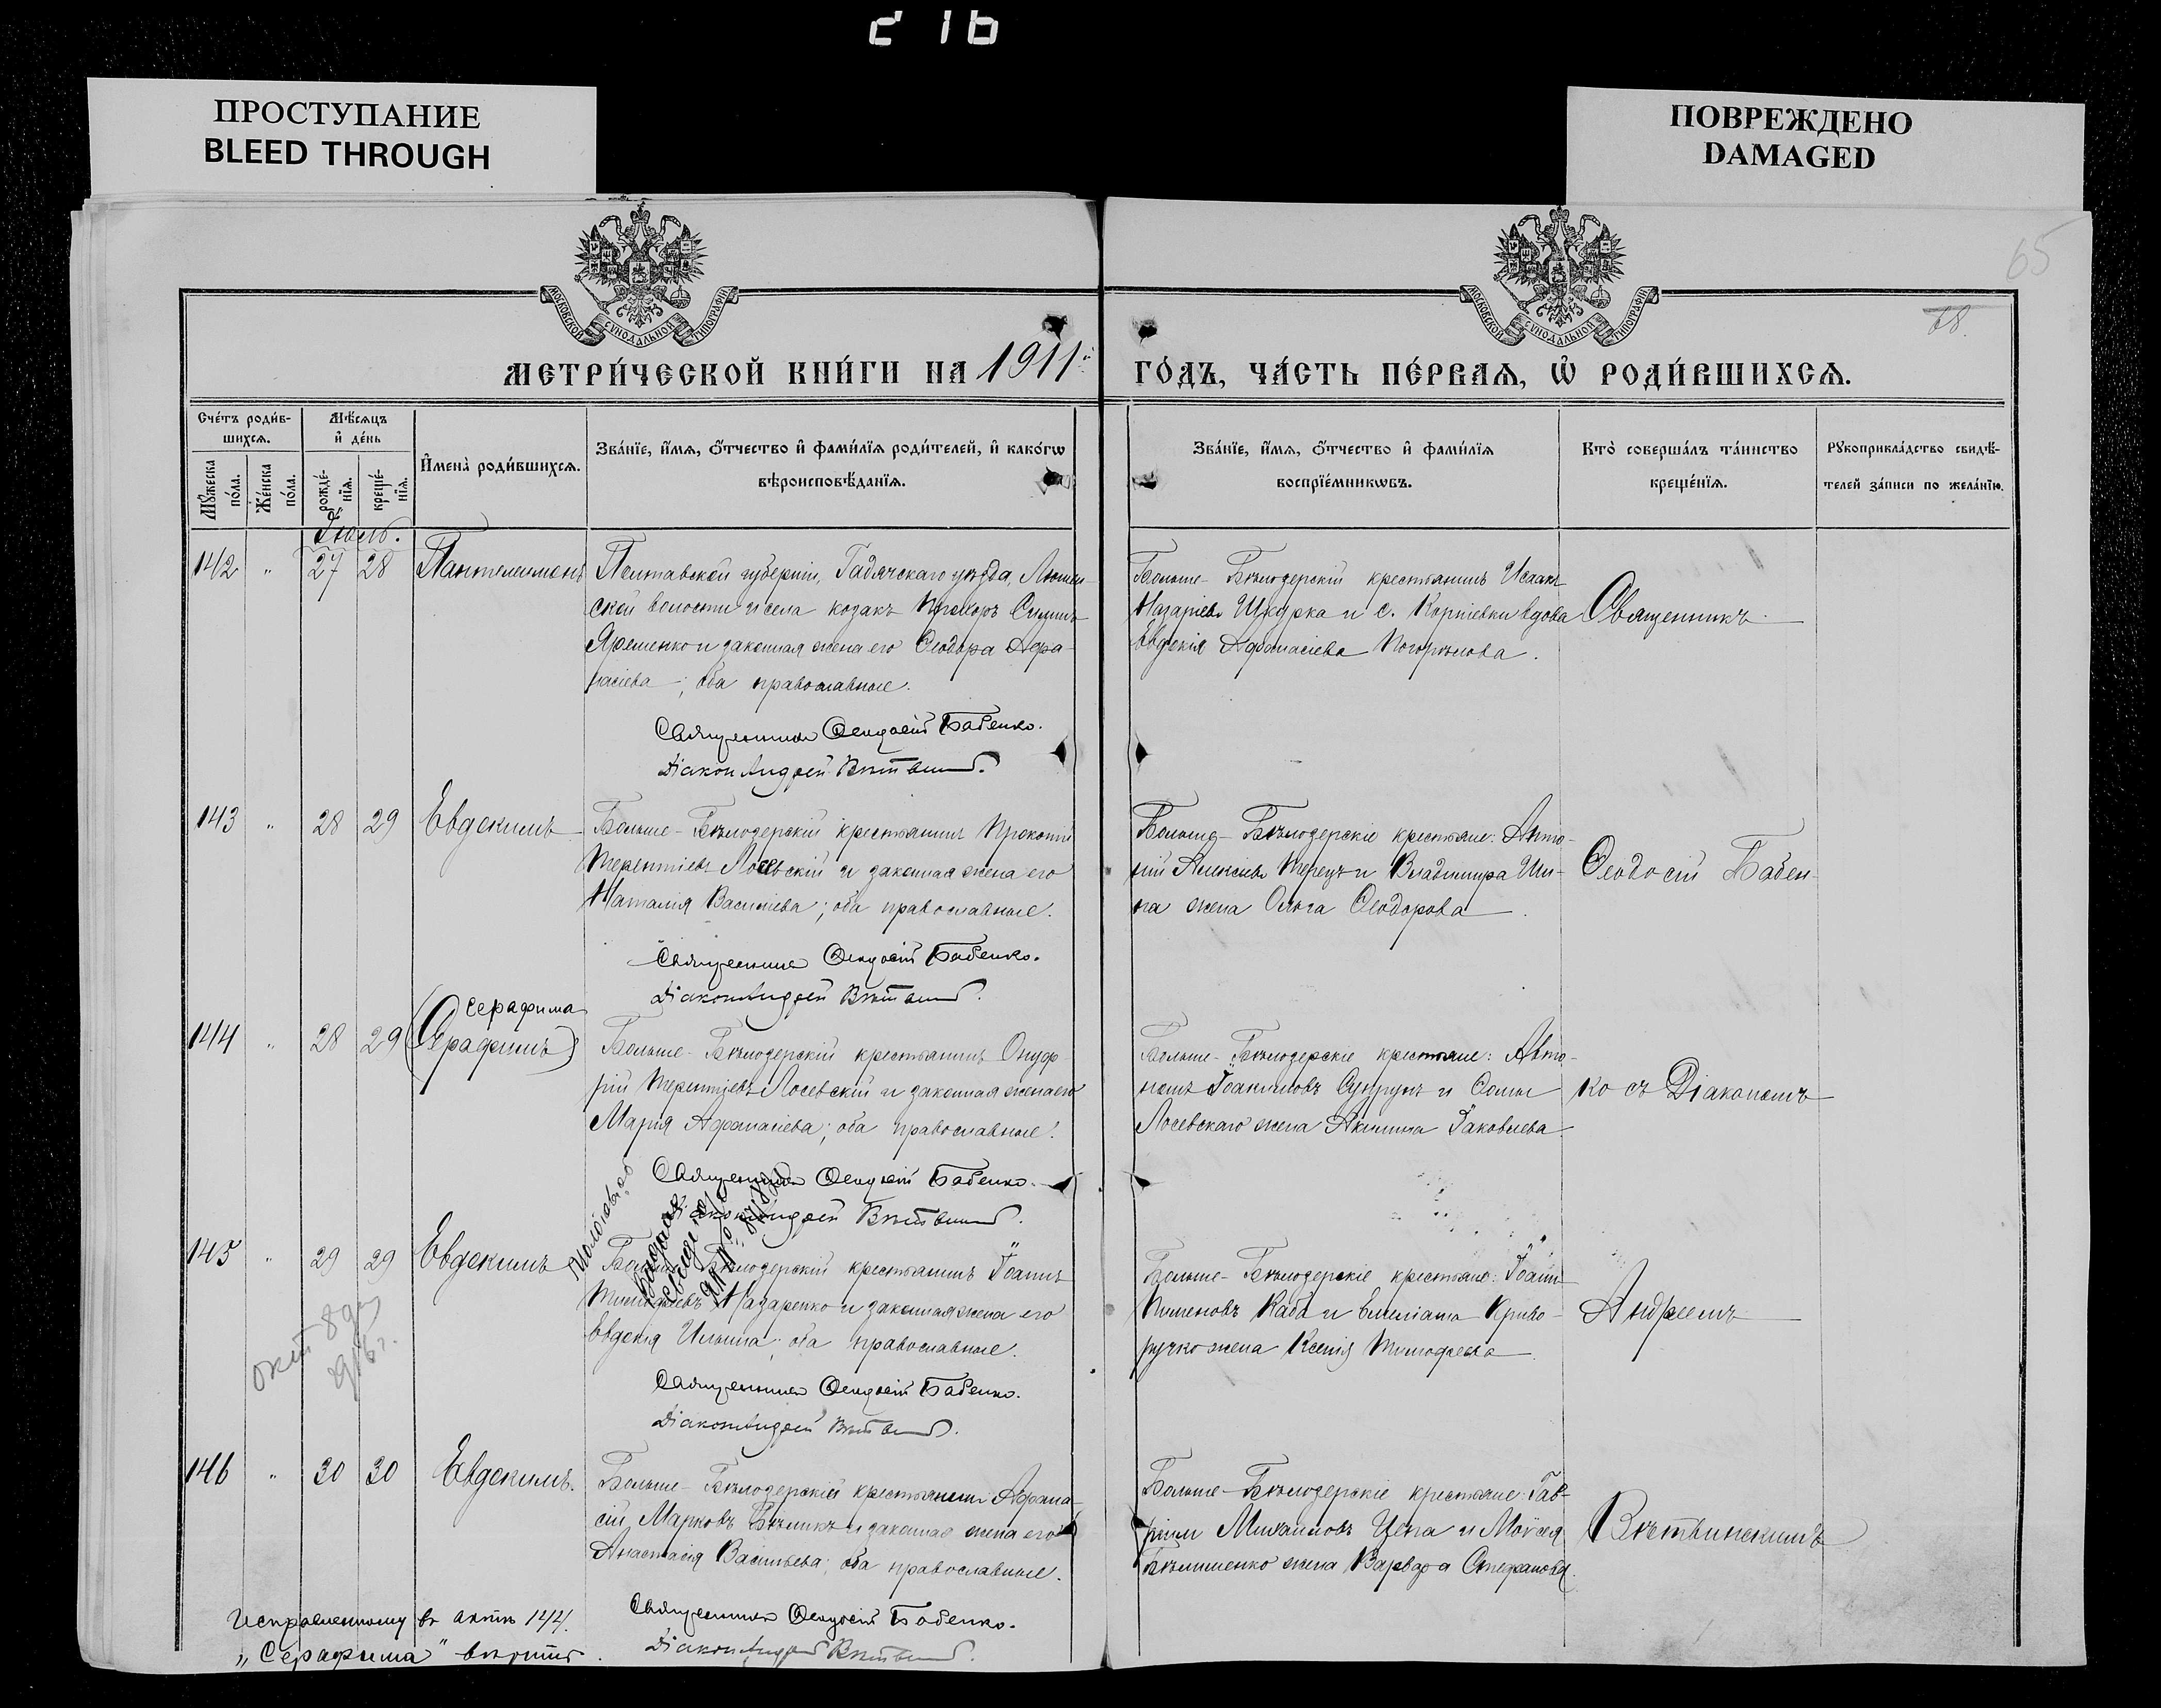 C 16
ПРОСТУПАНИЕ
BLEED THROUGH
ПОВРЕЖДЕНО
DAMAGED
65
МОСКОВСКОЙ СУНОДАЛЬНОЙ ТИПОГРАФІИ
МОСКОВСКОЙ СУНОДАЛЬНОЙ ТИПОГРАФІИ
68.
МЕТРИ́ЧЕСКОЙ КНИ́ГИ НА 1911й
ГО́ДЪ, ЧА́СТЬ ПЕ́РВАѦ, Ѡ҆ РОДИ́ВШИХСѦ.
Сче́тъ роди́в-
шихсѧ.
Мꙋ́жеска по́ла.
Же́нска по́ла.
Мѣ́сѧцъ
и҆ де́нь
рожде́-
нїѧ.
креще́-
нїѧ.
И҆мена̀ роди́вшихсѧ.
Зва́нїе, и҆́мѧ, ѻ҆́тчество и҆ фами́лїѧ роди́телей, и҆ како́гѡ
вѣроисповѣ́данїѧ.
Зва́нїе, и҆́мѧ, ѻ҆́тчество и҆ фами́лїѧ
воспрїе́мникѡвъ.
Кто̀ соверша́лъ та́инство
креще́нїѧ.
Рꙋкоприкла́дство свидѣ́-
телей за́писи по жела́нїю.
Іюль.
142 " 27 28 Пантелеимонъ
Полтавской губерніи, Гадячскаго уѣзда, Лютен-
ской волости и села козакъ Прохоръ
Яременко и законная жена его Ѳеодора Афа-
насіева; оба православные.
Священникъ Ѳеодосій Бабенко.
Діаконъ Андрей Вѣтвинскій.
Больше-Бѣлозерскій крестьянинъ Исаакъ
Назаріевъ Шкурка и с. Корніевки вдова
Евдокія Афанасіева Погорѣлова.
Священникъ
143 " 28 29 Евдокимъ
Больше-Бѣлозерскій крестьянинъ Прокопій
Терентіевъ Лосевскій и законная жена его
Наталія Василіева; оба православные.
Священникъ Ѳеодосій Бабенко.
Діаконъ Андрей Вѣтвинскій.
Больше-Бѣлозерскіе крестьяне: Анто-
ній Алексіевъ Терецъ и Владиміра
жена Ольга Ѳеодорова.
Ѳеодосій Бабен-
Серафима
144 " 28 29 (Серафимъ)
Больше-Бѣлозерскій крестьянинъ Онуф-
рій Терентіевъ Лосевскій и законная жена его
Марія Афанасіева; оба православные.
Священникъ Ѳеодосій Бабенко.
Діаконъ Андрей Вѣтвинскій.
Больше-Бѣлозерскіе крестьяне: Авто-
номъ Іоакимовъ Супрунъ и Ѳомы
Лосевскаго жена Акилина Іаковлева.
ко съ Діакономъ
145 " 29 29 Евдокимъ
окт 8 дня
1916 г.
Больше-Бѣлозерскій крестьянинъ Іоаннъ
Тимофѣевъ Назаренко и законная жена его
Евдокія Ильина; оба православные.
Священникъ Ѳеодосій Бабенко.
Діаконъ Андрей Вѣтвинскій.
Больше-Бѣлозерскіе крестьяне: Іоаннъ
Пименовъ Каба и Емиліана Криво-
ручко жена Ксенія Тимофеева.
Андреемъ
146 " 30 30 Евдокимъ.
Больше-Бѣлозерскій крестьянинъ Афана-
сій Марковъ Бѣликъ и законная жена его
Анастасія Васильева; оба православные.
Священникъ Ѳеодосій Бабенко.
Діаконъ Андрей Вѣтвинскій.
Больше-Бѣлозерскіе крестьяне: Гав-
ріилъ Михаиловъ Цепа и Моѵсея
Бѣлименко жена Варвара Стефанова.
Вѣтвинскимъ
Исправленному въ актѣ 144.
„Серафима" вѣрить.